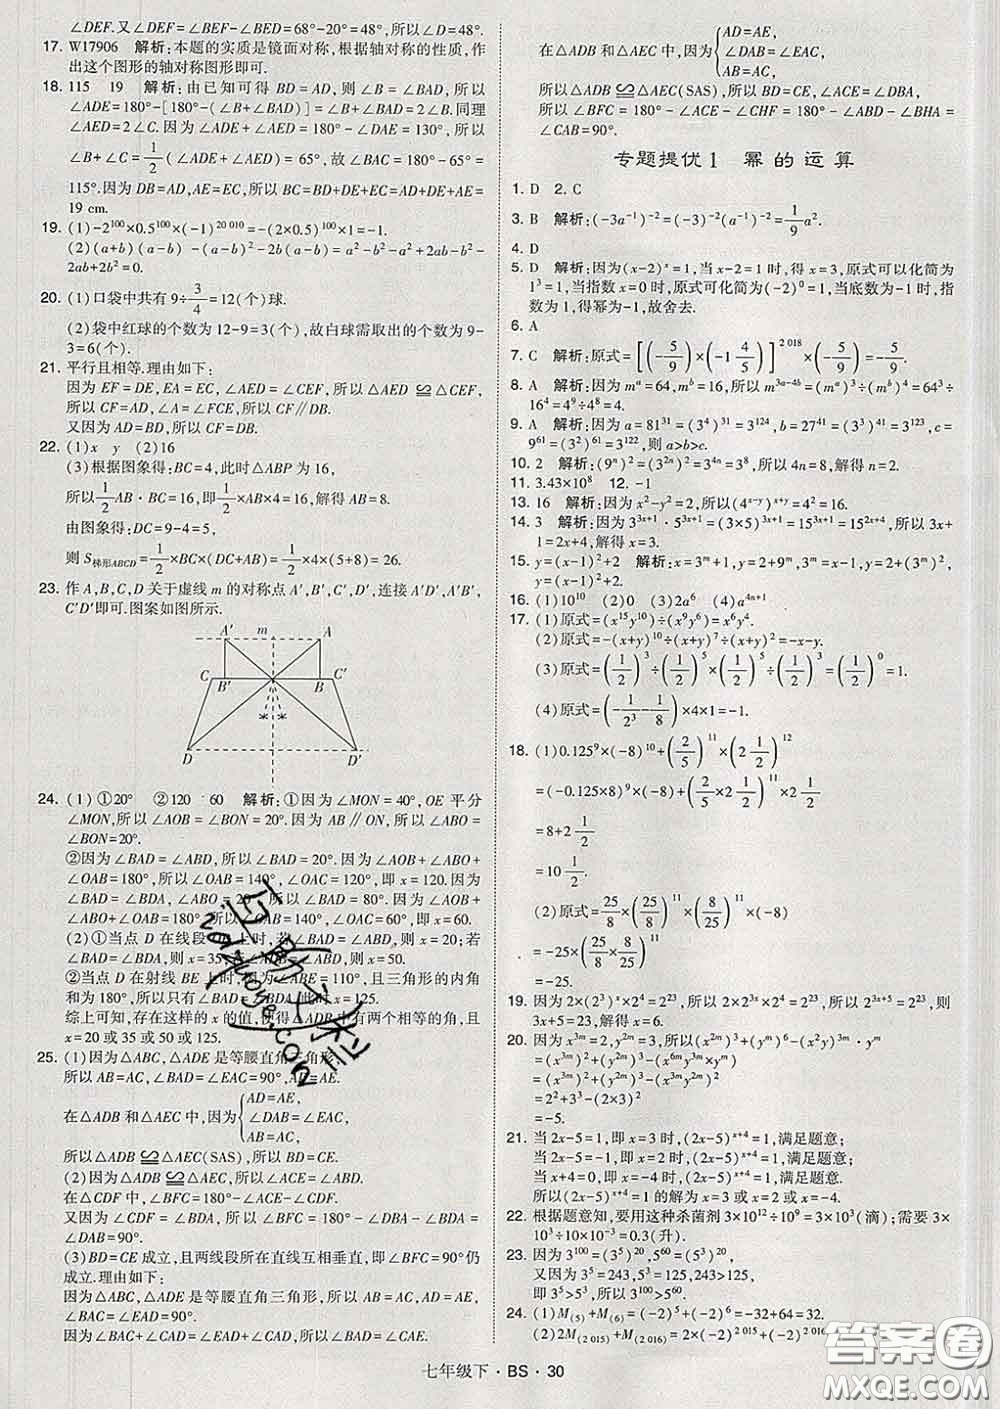 ∠DEF.又∠DEF=∠BEF-∠BED=68°-20°=48°,所以∠C=48°.
17. W17906 解析:本题的实质是镜面对称,根据轴对称的性质,作
出这个图形的轴对称图形即可.
18. 115 19 解析:由已知可得 BD=AD,则∠B=∠BAD,所以
∠ADE=180°-[180°-(∠B+∠BAD)]=∠B+∠BAD=2∠B.同理
∠AED=2∠C.因为∠ADE+∠AED=180°-∠DAE=130°,所以
∠B+∠C=1/2(∠ADE+∠AED)=65°,故∠BAC=180°-65°=
115°.因为 DB=AD,AE=EC,所以 BC=BD+DE+EC=AD+DE+AE=
19 cm.
19. (1)-2^100×0.5^100×(-1)^20 010=-(2×0.5)^100×1=-1.
(2)(a+b)(a-b)-(a-b)²-2b(a-b)=a²-b²-a²+2ab-b²-
2ab+2b²=0.
20. (1)口袋中共有 9÷3/4=12(个)球.
(2)袋中红球的个数为 12-9=3(个),故白球需取出的个数为 9-
3=6(个).
21. 平行且相等.理由如下:
因为 EF=DE,EA=EC,∠AED=∠CEF,所以△AED≌△CEF,
所以 CF=AD,∠A=∠FCE,所以 CF∥DB.
又因为 AD=BD,所以 CF=DB.
22. (1)x y (2)16
(3)根据图象得:BC=4,此时△ABP 为 16,
所以1/2AB·BC=16,即1/2×AB×4=16,解得 AB=8.
由图象得:DC=9-4=5,
则 S梯形ABCD=1/2×BC×(DC+AB)=1/2×4×(5+8)=26.
23. 作 A,B,C,D 关于虚线 m 的对称点 A′,B′,C′,D′,连接 A′D′,A′B′,
C′D′即可.图案如图所示.
A′ m A
C B′ B C′
D D′
24. (1)①20° ②120 60 解析:①因为∠MON=40°,OE 平分
∠MON,所以∠AOB=∠BON=20°.因为 AB∥ON,所以∠ABO=
∠BON=20°.
②因为∠BAD=∠ABD,所以∠BAD=20°.因为∠AOB+∠ABO+
∠OAB=180°,所以∠OAB=140°,∠OAC=120°,即 x=120.因为
∠BAD=∠BDA,∠ABO=20°,所以∠BAD=80°.因为∠AOB+
∠ABO+∠OAB=180°,所以∠OAB=140°,∠OAC=60°,即 x=60.
(2)①当点 D 在线段 OB 上时,若∠BAD=∠ABD,则 x=20;若
∠BAD=∠BDA,则 x=35;若∠ADB=∠ABD,则 x=50.
②当点 D 在射线 BE 上时,因为∠ABE=110°,且三角形的内角
和为 180°,所以只有∠BAD=∠BDA,此时 x=125.
综上可知,存在这样的 x 的值,使得△ADB 中有两个相等的角,且
x=20 或 35 或 50 或 125.
25. (1)因为△ABC,△ADE 是等腰直角三角形,
所以 AB=AC,∠BAD=∠EAC=90°,AD=AE.
在△ADB 和△AEC 中,因为{AD=AE,
∠DAB=∠EAC,
AB=AC,
所以△ADB≌△AEC(SAS),所以 BD=CE.
(2)因为△ADB≌△AEC,所以∠ACE=∠ABD.
在△CDF 中,∠BFC=180°-∠ACE-∠CDF.
又因为∠CDF=∠BDA,所以∠BFC=180°-∠DBA-∠BDA=
∠DAB=90°.
(3)BD=CE 成立,且两线段所在直线互相垂直,即∠BFC=90°仍
成立.理由如下:
因为△ABC,△ADE 是等腰直角三角形,所以 AB=AC,AD=AE,
∠BAC=∠EAD=90°.
因为∠BAC+∠CAD=∠EAD+∠CAD,所以∠BAD=∠CAE.
在△ADB 和△AEC 中,因为{AD=AE,
∠DAB=∠EAC,
AB=AC,
所以△ADB≌△AEC(SAS),所以 BD=CE,∠ACE=∠DBA,
所以∠BFC=180°-∠ACE-∠CHF=180°-∠ABD-∠BHA=
∠CAB=90°.
专题提优1 幂的运算
1. D 2. C
3. B 解析:(-3a⁻¹)⁻²=(-3)⁻²(a⁻¹)⁻²=1/9a².
4. D
5. D 解析:因为(x-2)^x=1,当 x-2=1 时,得 x=3,原式可以化简为
1³=1,当指数 x=0 时,原式可化简为(-2)⁰=1,当底数为-1时,指
数为1,得幂为-1,故舍去.
6. A
7. C 解析:原式=[(-5/9)×(-1 4/5)]^2 018×(-5/9)=-5/9.
8. A 解析:因为 m^a=64,m^b=16,所以 m^(3a-4b)=(m^a)³÷(m^b)⁴=64³÷
16⁴=4⁹÷4⁸=4.
9. A 解析:因为 a=81^31=(3⁴)^31=3^124,b=27^41=(3³)^41=3^123,c=
9^61=(3²)^61=3^122,则 a>b>c.
10. 2 解析:(9ⁿ)²=(3^2n)²=3^4n=3⁸,所以 4n=8,解得 n=2.
11. 3.43×10⁸ 12. -1
13. 16 解析:因为 x²-y²=2,所以(4^(x-y))^(x+y)=4²=16.
14. 3 解析:因为 3^(3x+1)·5^(3x+1)=(3×5)^(3x+1)=15^(3x+1)=15^(2x+4),所以 3x+
1=2x+4,解得 x=3.
15. y=(x-1)²+2 解析:因为 x=3^m+1,y=2+9^m,3^m=x-1,y=2+(3^m)²,所以
y=(x-1)²+2.
16. (1)10^10 (2)0 (3)2a⁶ (4)a^(4n+1)
17. (1)原式=(x^15y^10)÷(x⁹y⁶)=x⁶y⁴.
(2)原式=-(x+y)^10÷(x+y)⁷÷(x+y)²=-x-y.
(3)原式=(1/2)³÷(1/2)⁵×(1/2)⁷÷(1/2)⁵=(1/2)⁰=1.
(4)原式=(-1/2³-1/8)×4×1=-1.
18. (1)0.125⁹×(-8)^10+(2/5)^11×(2 1/2)^12
=(-0.125×8)⁹×(-8)+(2/5×2 1/2)^11×2 1/2
=8+2 1/2
=10 1/2.
(2)原式=25/8×(25/8)^11×(8/25)^11×(-8)
=-25×(25/8×8/25)^11
=-25.
19. 因为 2×(2³)^x×(2²)^x×2⁴=2^23,所以 2^(3x+5)=2^23,则
3x+5=23,解得 x=6.
20. 因为 x^3m=2,y^2m=3,所以(x^2m)³+(y^m)⁶-(x²y)^3m·y^m
=(x^3m)²+(y^2m)³-(x^6my^3m×y^m)
=(x^3m)²+(y^2m)³-(x^3my^2m)²
=2²+3³-(2×3)²
=-5.
21. 当 2x-5=1,即 x=3 时,(2x-5)^(x+4)=1,满足题意;
当 2x-5=-1,即 x=2 时,(2x-5)^(x+4)=1,满足题意;
当 x+4=0,即 x=-4 时,(2x-5)^(x+4)=1,满足题意.
所以(2x-5)^(x+4)=1 的解为 x=3 或 x=2 或 x=-4.
22. 根据题意知,要用这种杀菌剂 3×10^12÷10⁹=3×10³(滴);需要
3×10³÷10×10⁻³=0.3(升).
23. 因为 3^100=(3⁵)^20,5^60=(5³)^20,
又因为 3⁵=243,5³=125,243>125,
即 3⁵>5³,所以 3^100>5^60.
24. (1)M(5)+M(6)=(-2)⁵+(-2)⁶=-32+64=32.
(2)2M(2 015)+M(2 016)=2×(-2)^2 015+(-2)^2 016
七年级下·BS·30
答案卷
MXQE.COM